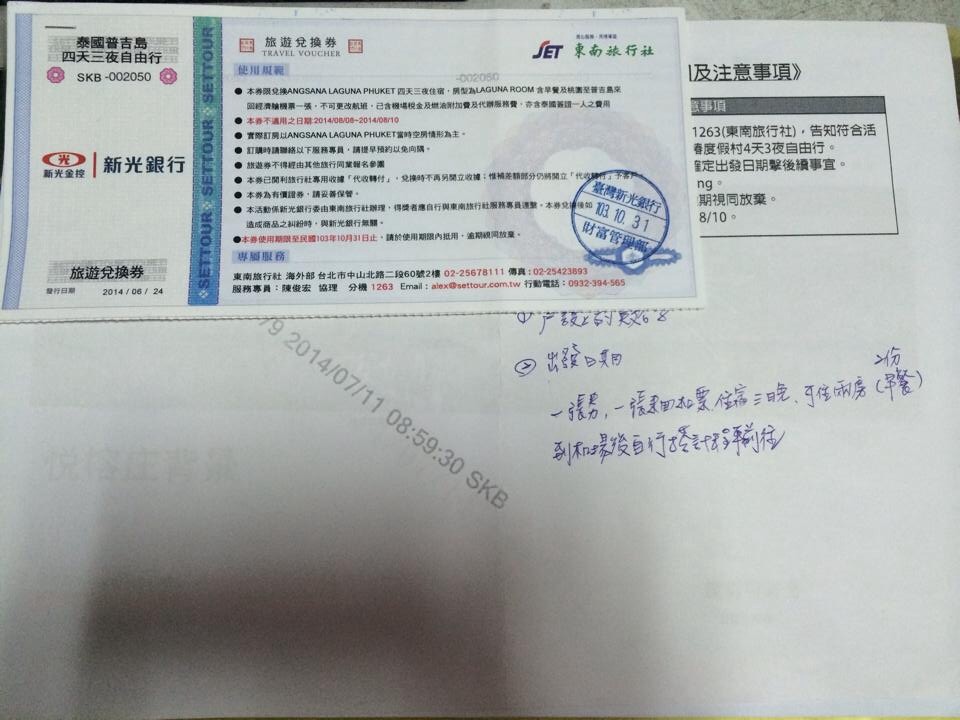 泰國普吉島
四天三夜自由行
SKB -002050
新光金控
新光銀行
旅遊兌換券
發行日期 2014 / 06 / 24
SETTOUR SETTOUR SETTOUR SETTOUR
旅遊兌換券
TRAVEL VOUCHER
SET 東南旅行社
使用規範
-002050
● 本券限兌換ANGSANA LAGUNA PHUKET 四天三夜住宿，房型為LAGUNA ROOM 含早餐及桃園至普吉島來
回經濟艙機票一張，不可更改航班，已含機場稅金及燃油附加費及代辦服務費，亦含泰國簽證一人之費用
● 本券不適用之日期:2014/08/08~2014/08/10
● 實際訂房以ANGSANA LAGUNA PHUKET當時空房情形為主。
● 訂購時請聯絡以下服務專員，請提早預約以免向隅。
● 旅遊券不得經由其他旅行同業報名參團
● 本券已開列旅行社專用收據「代收轉付」，兌換時不再另開立收據；惟補差額部分仍將開立「代收轉付」予客戶
● 本券為有價證券，請妥善保管。
● 本活動係新光銀行委由東南旅行社辦理，得獎者應自行與東南旅行社服務專員連繫。本券兌換後如
造成商品之糾紛時，與新光銀行無關。
●本券使用期限至民國103年10月31日止，請於使用期限內抵用，逾期視同放棄。
臺灣新光銀行
103.10.31
財富管理部
專屬服務
東南旅行社 海外部 台北市中山北路二段60號2樓 02-25678111 傳真：02-25423893
服務專員：陳俊宏 協理 分機 1263 Email：alex@settour.com.tw 行動電話：0932-394-565
及注意事項》
意事項
1263(東南旅行社)，告知符合活
度假村4天3夜自由行。
確定出發日期擊後續事宜。
ng。
期視同放棄。
8/10。
79 2014/07/11 08:59:30 SKB
②出發日期
2份
一張券,一張來回机票,住宿三晚、可住兩房(早餐)
到机場後自行搭計程車前往